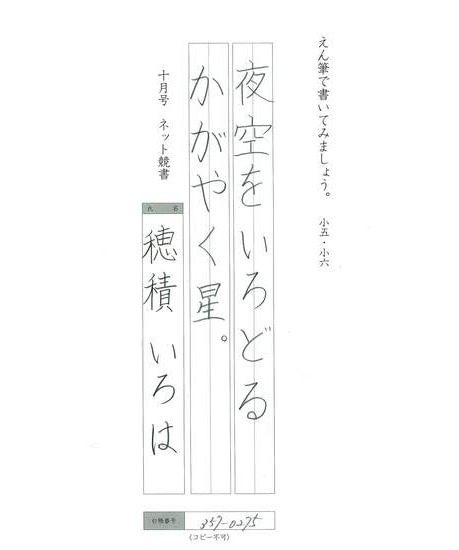 えん筆で書いてみましょう。 小五・小六
夜空をいろどる
かがやく星。
十月号 ネット競書
氏名
穂積 いろは
357-0275
(コピー不可)